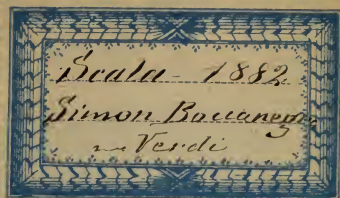 Scala - 1882
Simon Boccanegra
Verdi